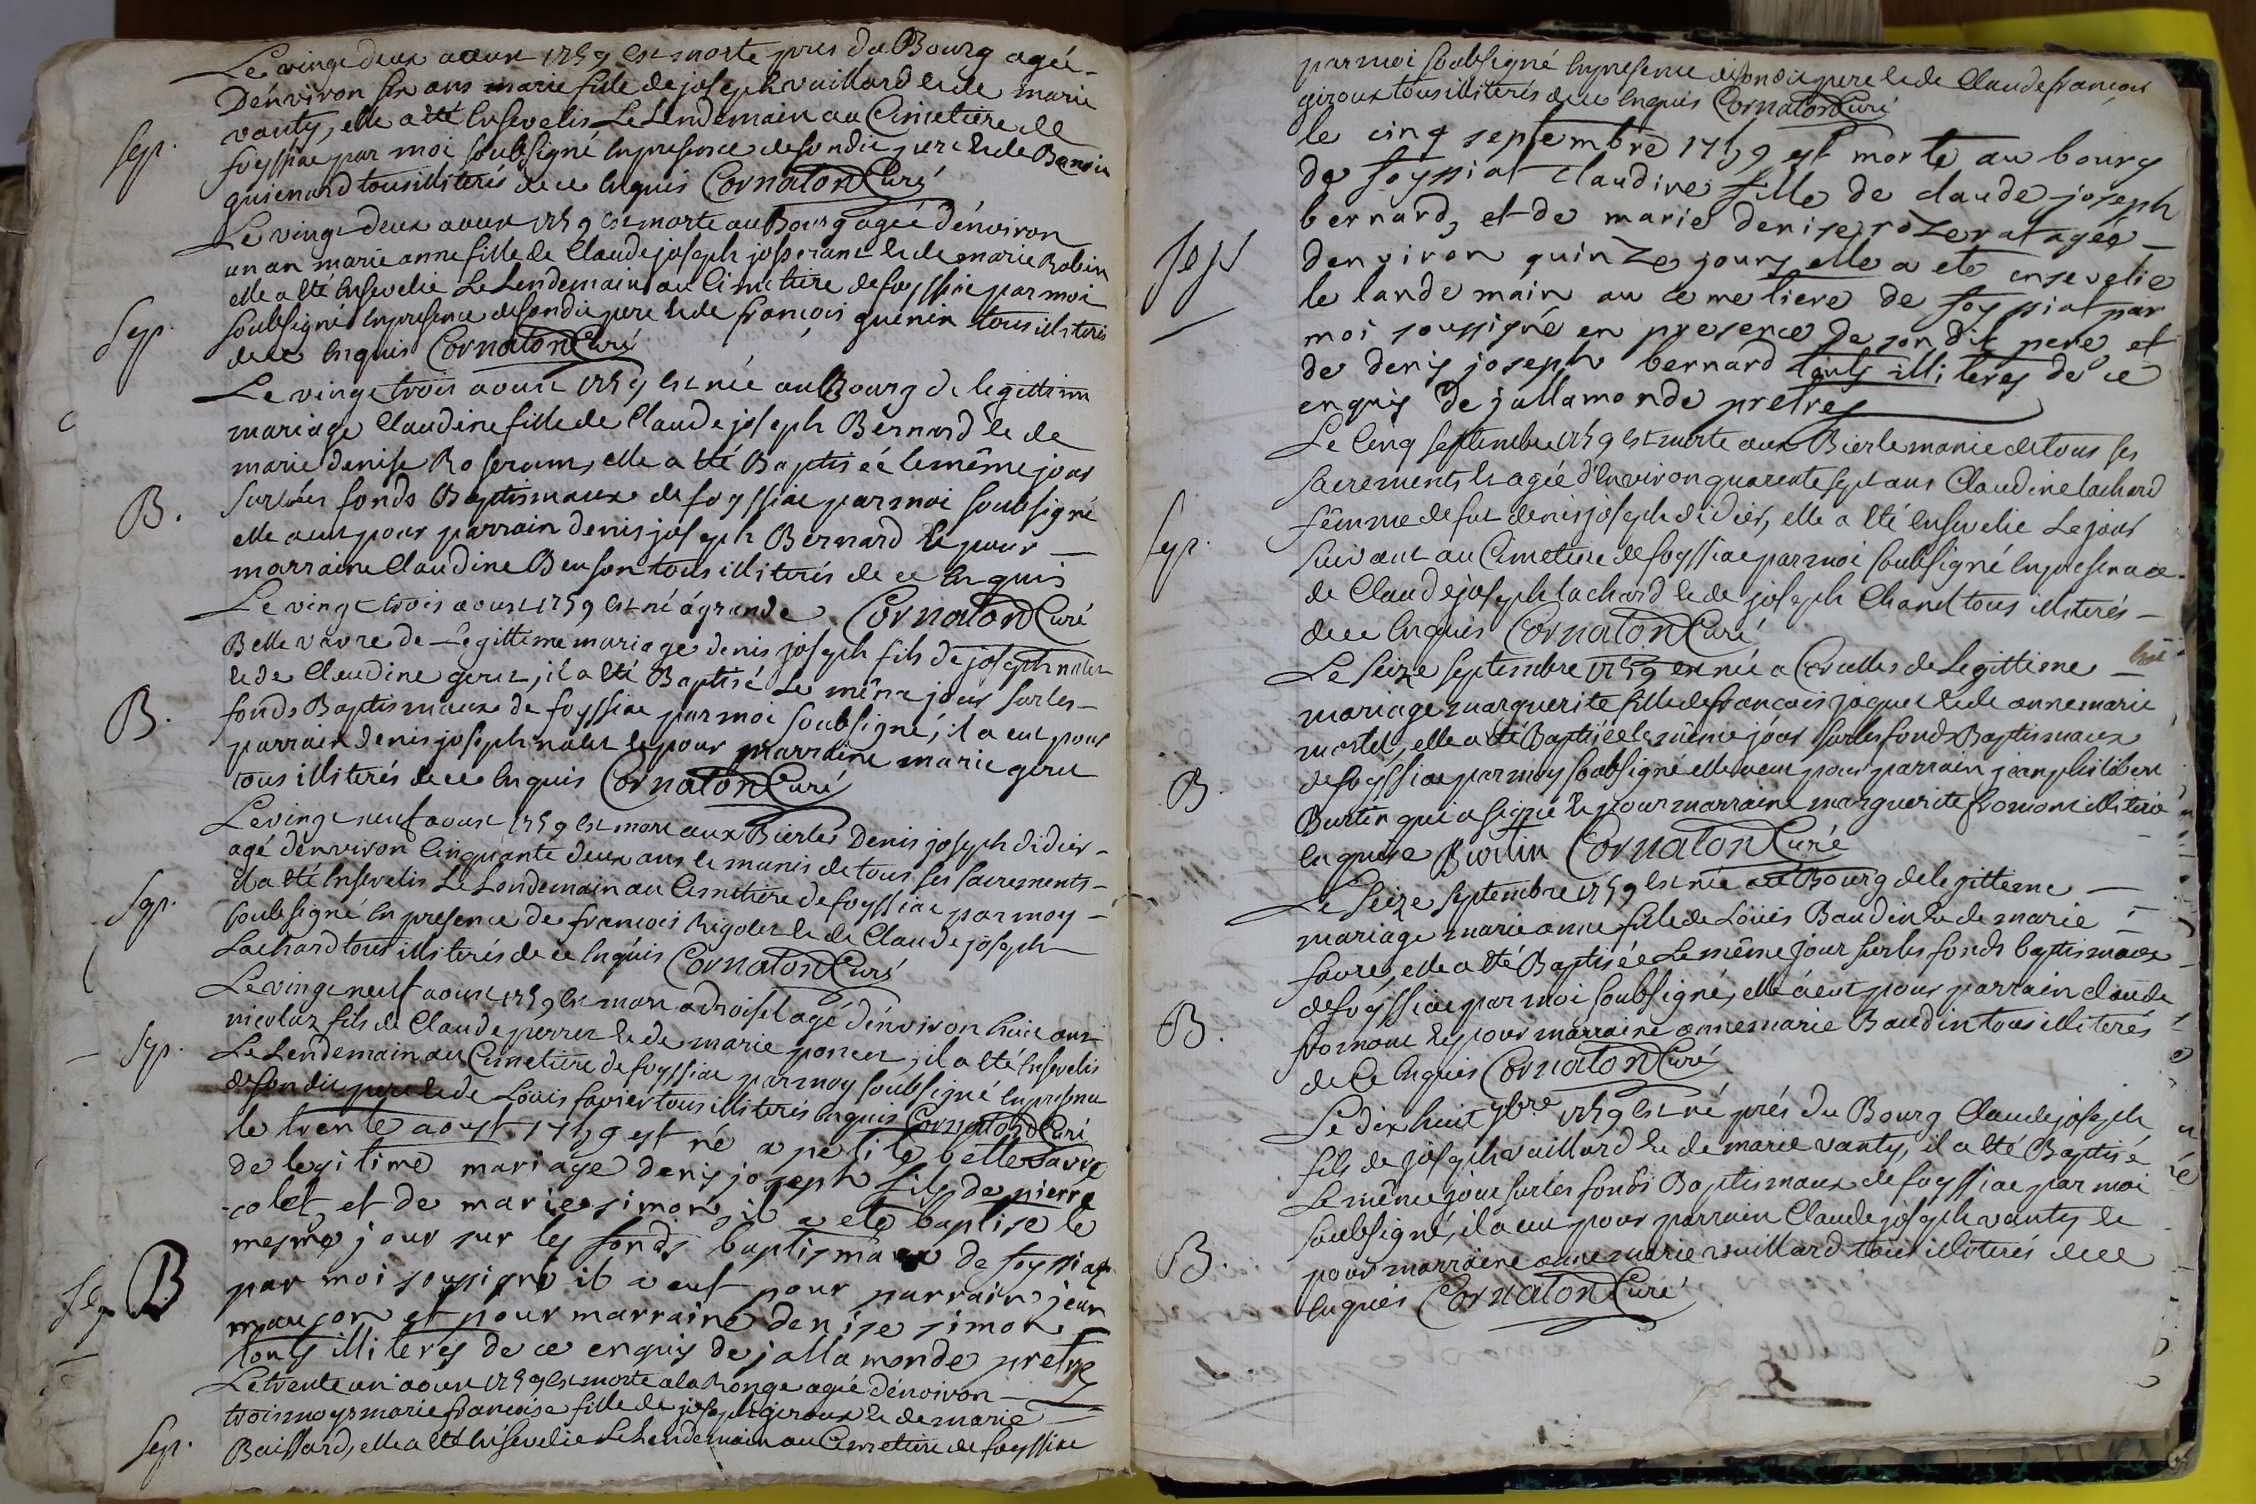 Le vingt deux aoust 1759 est morte pres du Bourg agée
D'environ six ans marie fille de joseph vuillard et de marie
vanty, elle a eté Ensevelis Le Lendemain au Cimetiere de
Sep.
foyssiac par moi soubsigné En presence de son dit pere et de
guienard tous illiterés de ce Enquis Cornaton Curé
Le vingt deux aoust 1759 est morte au Bourg agée d'environ
un an marie anne fille de Claude joseph josserant et de marie Robin
elle a eté Ensevelie Le Lendemain au Cimetiere de foyssiac par moi
Sep.
soubsigné En presence de son dit pere et de françois guenin tous illiterés
de ce Enquis Cornaton Curé
Le vingt trois aoust 1759 est née au Bourg de legittime
mariage Claudine fille de Claude joseph Bernard et de
marie denise Roseram, elle a eté Baptiséé le même jour
B.
sur les fonds Baptismaux de foyssiac par moi soubsigné
elle a eut pour parrain denis joseph Bernard et pour
marraine Claudine Beuson tous illiterés de ce Enquis
Le vingt trois aoust 1759 est né à grande Cornaton Curé
Belle vavre de Legittime mariage denis joseph fils de joseph
et de Claudine geret, il a eté Baptisé Le même jour sur les
B.
fonds Baptismaux de foyssiac par moi soubsigné, il a eut pour
parrain denis joseph et pour marraine marie geret
tous illiterés de ce Enquis Cornaton Curé
Le vingt neuf aoust 1759 est mort aux Bierles Denis joseph didier
agé d'environ Cinquante deux ans et munis de tous ses sacrements
il a eté Ensevelis Le Lendemain au Cimetiere de foyssiac par moy
Sep.
soubsigné En presence de francois Rigolet et de Claude joseph
Lachard tous illiterés de ce Enquis Cornaton Curé
Le vingt neuf aoust 1759 est mort a droisel agé d'environ huit ans
nicolas fils de Claude perret et de marie poncet, il a eté Ensevelis
Sep.
Le Lendemain au Cimetiere de foyssiac par moy soubsigné En presence
de son dit pere et de Louis favier tous illiterés Enquis Cornaton Curé
le trente aoust 1759 est né a petite belle vavre
de legitime mariage denis joseph fils de pierre
colet et de marie simon, il a eté baptise le
mesme jour sur les fonds baptismaux de foyssiat
Sep. B
par moi soussigné il a eut pour parrain jean
maucon et pour marraine denise simon
touts illiteres de ce enquis de jallamonde pretre
Le trente un aoust 1759 est morte a la Ronge agée d'environ
trois moys marie francoise fille de joseph giroux et de marie
Sep.
Baissard, elle a eté Ensevelie Le Lendemain au Cimetiere de foyssiac
par moi soubsigné En presence de son dit pere et de Claude françois
giroux tous illiterés de ce Enquis Cornaton Curé
le cinq septembre 1759 est morte au bourg
de foyssiat claudine fille de claude joseph
bernard, et de marie denise rozerat agée
Sep
d'environ quinze jours elle a ete ensevelie
le lande main au cemetiere de foyssiat par
moi soussigné en presence de son dit pere et
de denis joseph bernard touts illiteres de ce
enquis de jallamonde pretres
Le Cinq septembre 1759 est morte aux Bierle munie de tous ses
sacrements et agée d'Environ quarente sept ans Claudine lachard
fêmme de fut denis joseph didier, elle a eté Ensevelie Le jour
Sep.
suivant au Cimetiere de foyssiac par moi soubsigné En presence
de Claude joseph lachard et de joseph Chanel tous illiterés
de ce Enquis Cornaton Curé
Le Seize septembre 1759 est née a Corcelles de Legittime
mariage marguerite fille de francois joquet et de anne marie
martel, elle a eté Baptisée le même jour sur les fonds Baptismaux
B.
de foyssiac par moy soubsigné elle a eut pour parrain jean philibert
Burtin qui a signé et pour marraine marguerite fromont illiterée
Enquise Burtin Cornaton Curé
Le Seize septembre 1759 est née au Bourg de legitteme
mariage marie anne fille de Loüis Baudin et de marie
favre, elle a eté Baptiséé Le même jour sur les fonds baptismaux
de foyssiac par moi soubsigné, elle a eut pour parrain claude
B.
fromont et pour marraine anne marie Baudin tous illiterés
de Ce Enquis Cornaton Curé
Le dix huit 7bre 1759 est né prés du Bourg Claude joseph
fils de joseph vuillard et de marie vanty, il a eté Baptisé
Le même jour sur les fonds Baptismaux de foyssiac par moi
soubsigné, il a eu pour parrain Claude joseph vanty et
B.
pour marraine anne marie vuillard tous illiterés de ce
Enquis Cornaton Curé